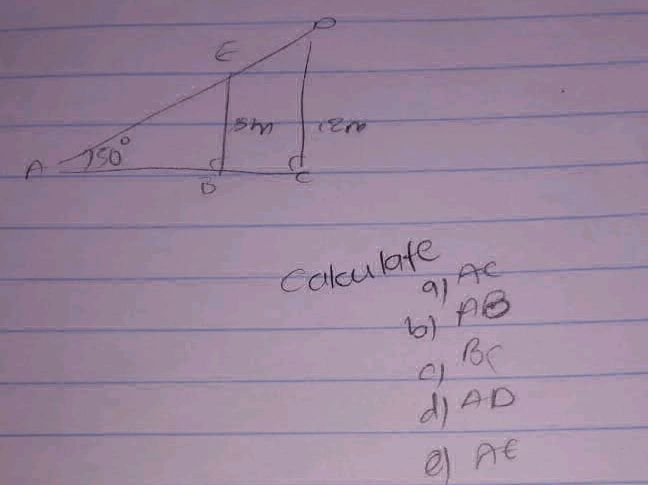 D
E
5m 12m
A 50°
B C
Calculate
a) AC
b) AB
c) BC
d) AD
e) AE